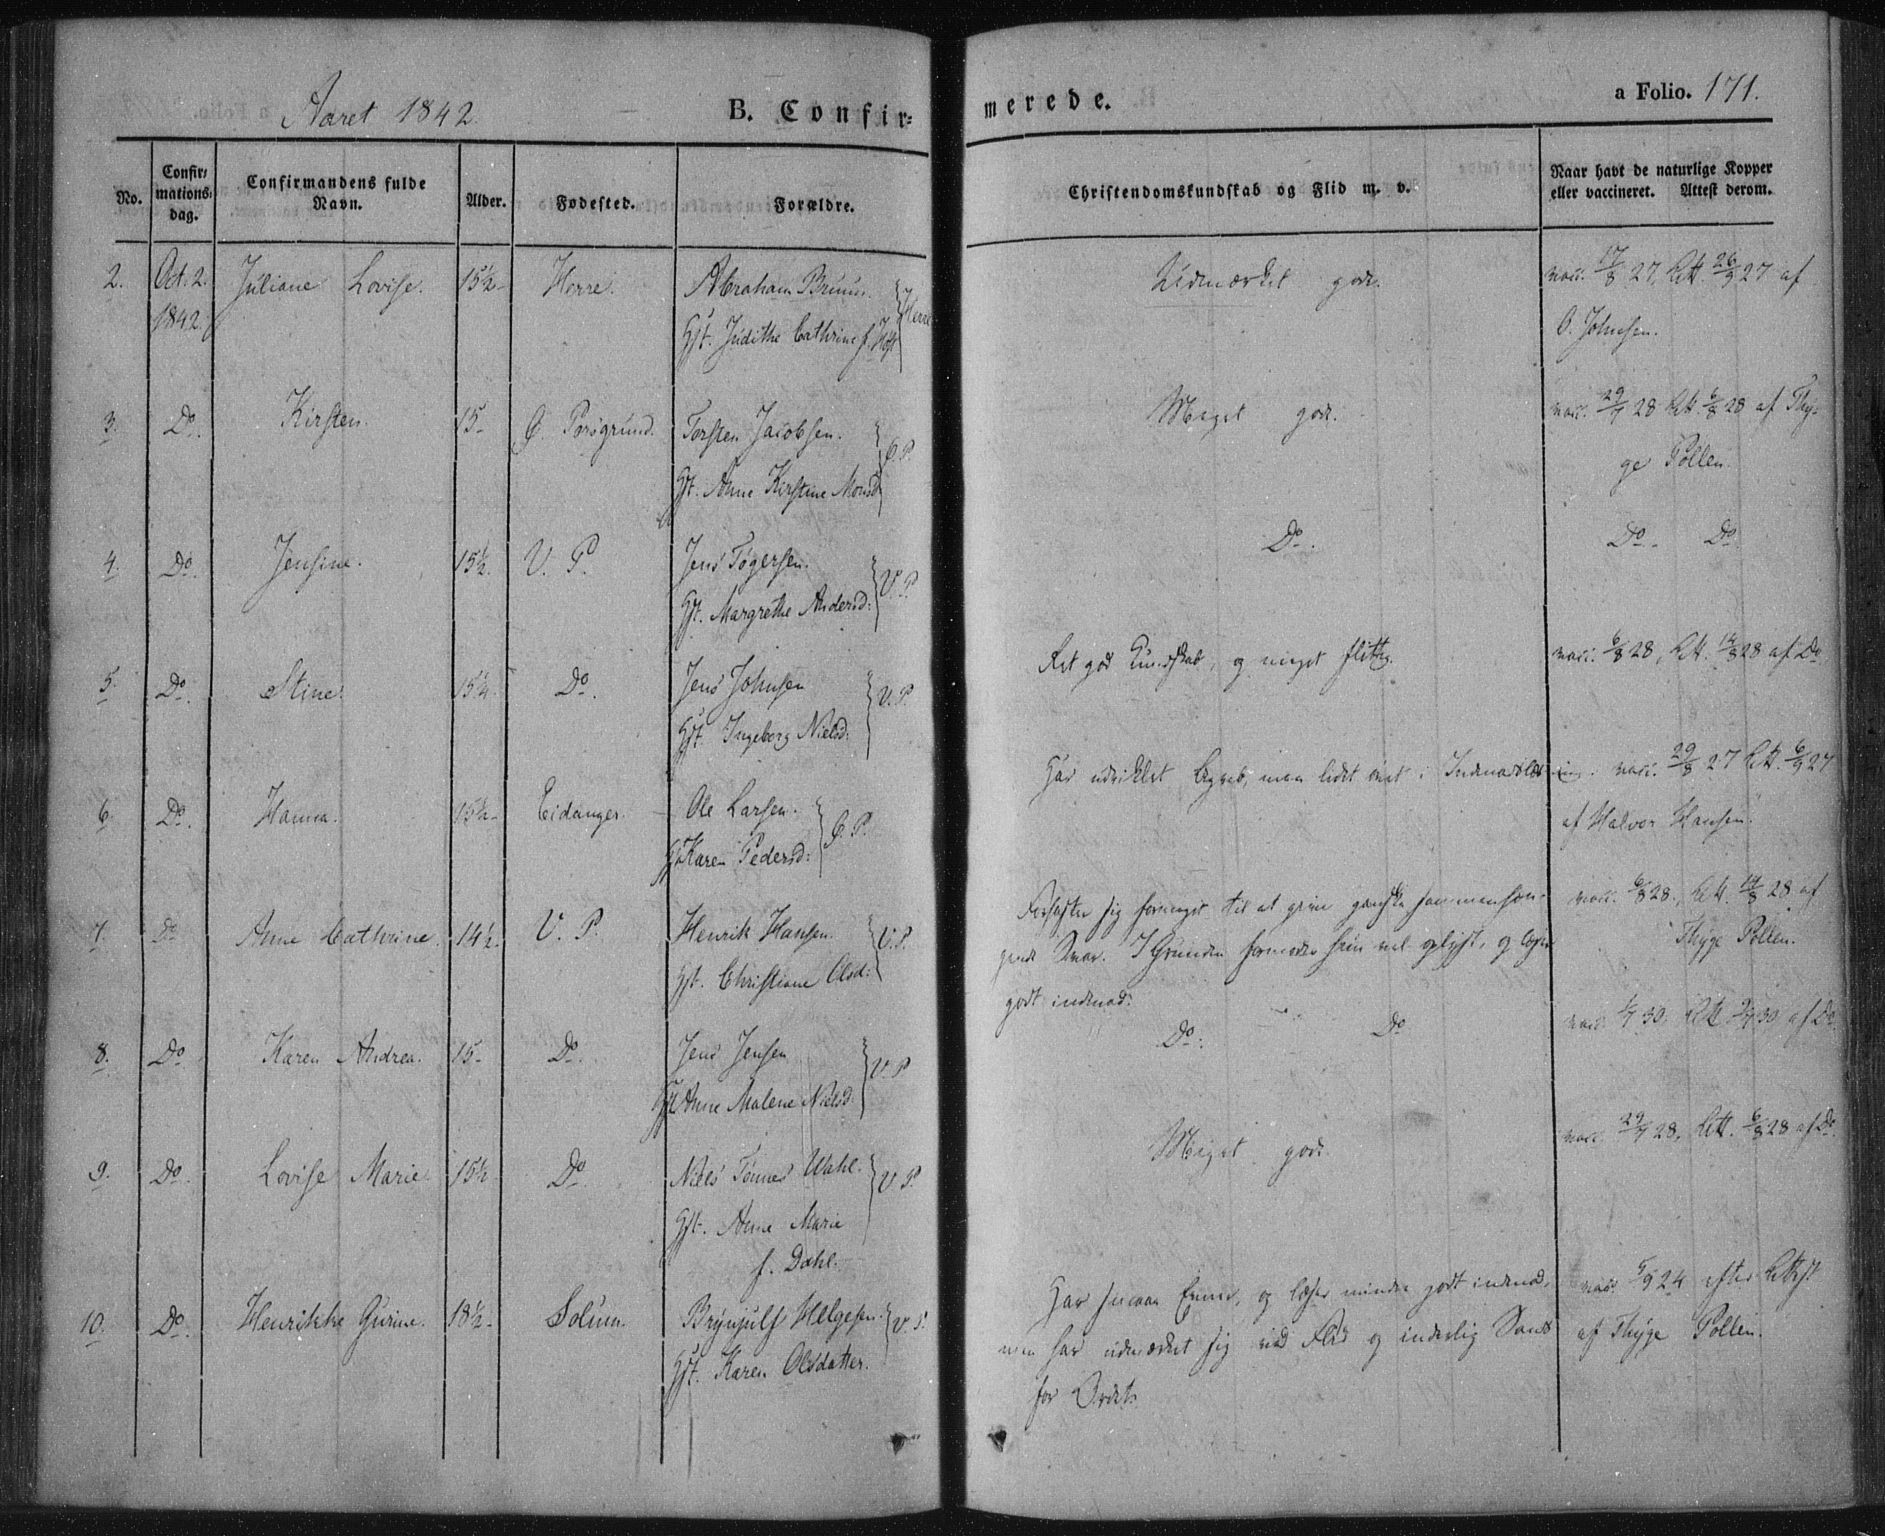 Aaret 1842
B. Confir=
merede.
a Folio. 171.
No.
Confir=
mations=
dag.
Confirmandens fulde
Navn.
Alder.
Fødested.
Forældre.
Christendomskundskab og Flid m. v.
Naar havt de naturlige Kopper
eller vaccineret. Attest derom.
2. Oct. 2. Juliane Lovise. 15½ Herre. Abraham Bruun. Herre Udmærket god. vacc. 17/8 27, Att. 26/9 27 af
1842. Gst. Judithe Cathrine f. O. Johnsen.
3. Do. Kirsten. 15 Ø. Porsgrund. Torsten Jacobsen. Ø. P. Meget god. vacc. 29/7 28 Att. 6/8 28 af Thy=
Gst. Anne Kirstine Monsd ge Pollen.
4. Do. Jensine. 15½. V. P. Jens Tøgersen. V. P. Do. Do. Do.
Gst. Margrethe Andersd:
5. Do. Stine. 15¼. Do. Jens Johnsen V. P. Ret god Kundskab, og meget flittig. vacc. 6/8 28, Att. 14/8 28 af Do.
Gst. Ingeborg Nielsd:
6. Do. Hanna. 15½ Eidanger. Ole Larsen. Ø. P. Har udviklet Begreb, men lidet øvet i Indenadslæsning. vacc. 29/8 27 Att. 6/9 27
Gst Karen Pedersd: af Halvor Hansen.
7. Do Anne Cathrine. 14½. V. P. Henrik Hansen. V. P. sig til at give ganske sammenhæn= vacc. 6/8 28, Att. 14/8 28 af
Gst. Christiane Olsd: gende Svar. I Grunden hun vel oplyst, og læser Thyge Pollen.
godt indenad.
8. Do Karen Andrea. 15 Do. Jens Jensen V. P Do. Do vacc. 1/7 30. Att 30 af Do.
Gst Anne Malene Nielsd:
9. Do. Lovise Marie. 15½ Do. Niels Tønnes Wahl. V P. Meget god. vacc. 29/7 28, Att. 6/8 28 af Do.
Gst. Anne Marie
f. Dahl.
10. Do. Henrikke Gurine. 18½ Solum. Brynjulf Helgesen. V. P. Har svage Evner, og læser mindre godt indenad, vacc. 5/9 24 efter Attest
Gst. Karen Olsdatter. men har udmærket sig ved Flid og inderlig Sands af Thyge Pollen.
for Ordet.